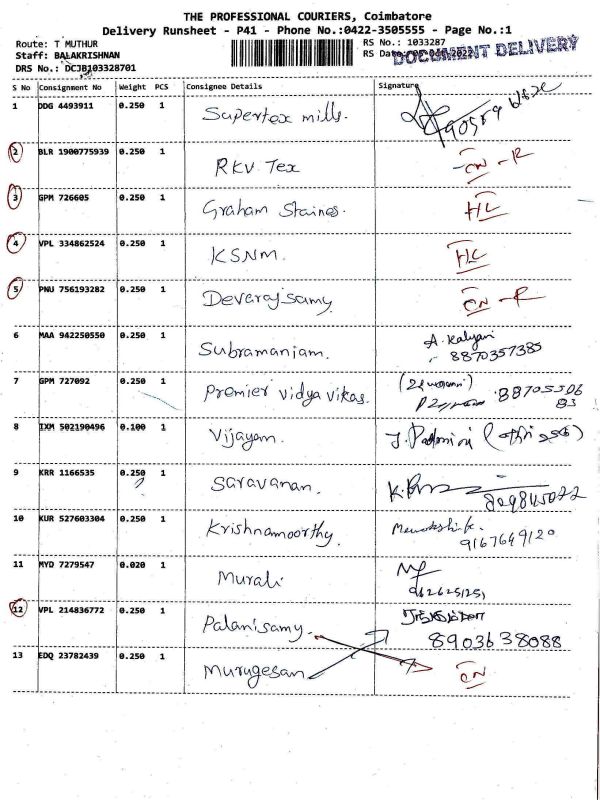 THE PROFESSIONAL COURIERS, Coimbatore
Delivery Runsheet - P41 - Phone No.:0422-3505555 - Page No.:1
Route: T MUTHUR
RS No.: 1033287
Staff: BALAKRISHNAN
RS Date:
DOCUMENT DELIVERY
DRS No.: DCJB103328701
S No Consignment No Weight PCS Consignee Details Signature
1 DDG 4493911 0.250 1 Supertex mills.
2 BLR 1900775939 0.250 1 RKV Tex CN - R
3 GPM 726605 0.250 1 Graham Staines. HC
4 VPL 334862524 0.250 1 KSNM. HC
5 PNU 756193282 0.250 1 Devarajsamy. CN - R
6 MAA 942250550 0.250 1 Subramaniam. A. Kalyani
8870357385
7 GPM 727092 0.250 1 Premier Vidya Vikas. 88705506
83
8 IXM 502190496 0.100 1 Vijayam. J. Padmini
9 KRR 1166535 0.250 1 Saravanan.
10 KUR 527603304 0.250 1 Krishnamoorthy.
9167649120
11 MYD 7279547 0.020 1 Murali
12 VPL 214836772 0.250 1 Palanisamy.
8903638088
13 EDQ 23782439 0.250 1 Murugesan CN